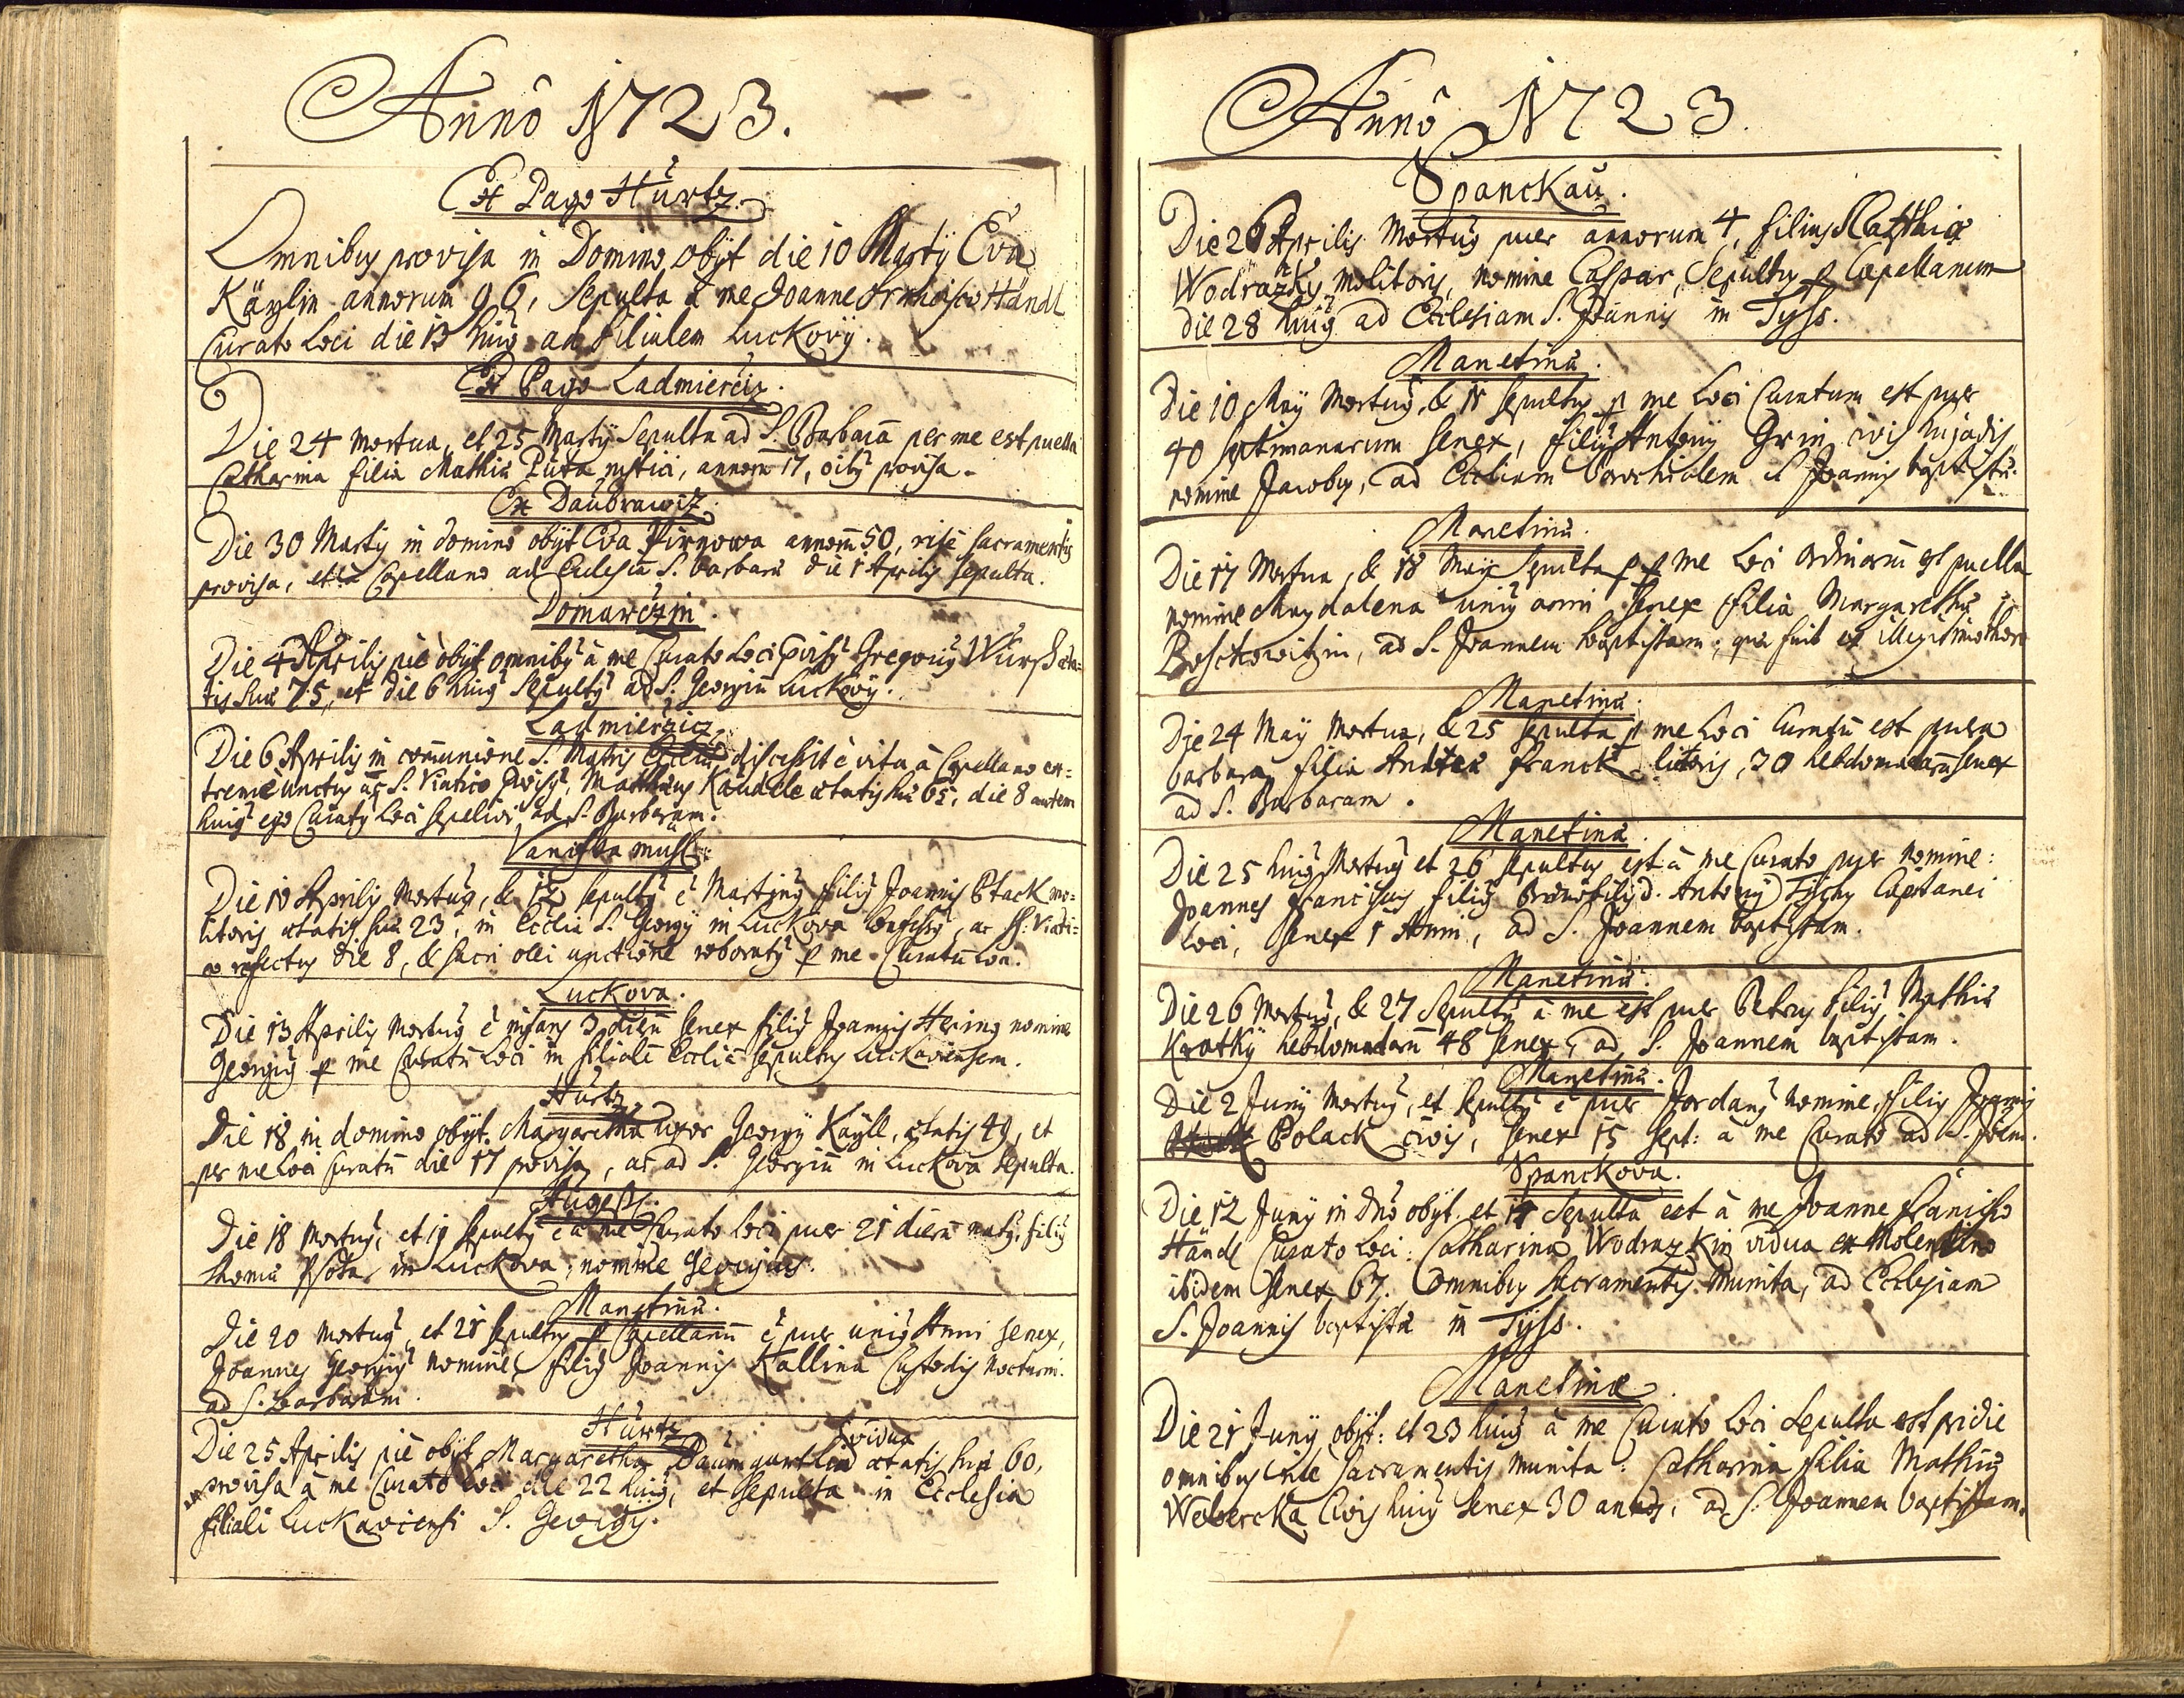 Anno 1723.
Ex Pago Hurtz.
Omnibus provisa in Domino obijt die 10 Martij Eva
Käylin annorum 96, Sepulta à me Joanne Händl
Curato Loci die 13 huius ad filialem Luckovij.
Ex Pago Ladmierčiz.
Die 24 mortua, et 25 Martij Sepulta ad S. Barbarā per me est puella
Catharina filia Mathiæ Puta rustici, annorū 17, oibꝰ provisa.
Ex Daubrawiz
Die 30 Martij in domino obijt Eva Pirnowa annorū 50, rite sacramentis
provisa, Capellano ad Ecclesiā S. Barbaræ die 1 Aprilis sepulta.
Domawčzin.
Die 4 Aprilis piè obijt omnibꝰ à me Curato Loci Gregoriꝰ Wurß æta-
tis suæ 75, et die 6 huiꝰ Sepultꝰ ad S. Georgiū Luckovij.
Ladmierzicz.
Die 6 Aprilis in comunione S. Matris Ecclesiæ discessit è vita à Capellano ex-
tremè unctus ac S. Viatico Matthæus Kandele ætatis suæ 65, die 8 autem
huiꝰ ego Curatꝰ Loci sepelivi ad S. Barbaram.
Die 10 Aprilis mortuꝰ, & 12 sepultꝰ ē Martinꝰ filiꝰ Joannis Ptack mo-
litoris ætatis suæ 23, in Ecclia S. Georgij in Luckova confessꝰ, ac SS: Viati-
co refectus die 8, & sacri olei unctione roboratꝰ ꝑ me Curatū Loci.
Luckova.
Die 13 Aprilis mortuꝰ ē infans 3 dierū senex filiꝰ Joannis Hering nomine
Georgiꝰ ꝑ me Curatū Loci in filiali Ecclia sepultus Luckaviensem.
Hurtz
Die 18 in domino obijt Margaretha uxor Georgij Käyll, ætatis 49, et
per me Loci Curatū die 17 provisa, ac ad S. Georgiū in Luckova sepulta.
Die 18 mortuꝰ, et 19 sepultꝰ ē à me Curato Loci puer 21 dierū natꝰ, filiꝰ
Thomæ Psota in Luckova, nomine Georgius.
Manetinæ.
Die 20 mortuꝰ, et 21 sepultus ꝑ Capellanū ē puer uniꝰ Anni senex,
Joannes Georgiꝰ nomine, filiꝰ Joannis Kallina Custodis nocturni.
ad S. Barbaram.
Hurtz
Die 25 Aprilis piè obijt Margaretha Baumgartlin vidua ætatis suæ 60,
provisa à me Curato Loci die 22 huiꝰ, et sepulta in Ecclesia
filiali Luckaviensi S. Georgij.
Anno 1723.
Spanckau.
Die 26 Aprilis Mortuꝰ puer annorum 4, filius Matthiæ
Wodrazky molitoris, nomine Caspar, Sepultus ꝑ Capellanum
die 28 huiꝰ ad Ecclesiam S. Joannis in Tyss.
Manetinæ.
Die 10 Maij Mortuꝰ, & 11 sepultus ꝑ me Loci Curatum est puer
40 septimanarum senex, filiꝰ Antonij Grin civis hujatis,
nomine Jacobus, ad Eccliam Parochialem S Joannis baptistæ.
Manetinæ.
Die 17 Mortua, & 18 Maij Sepulta ꝑ me Loci ordinariū est puella
nomine Magdalena uniꝰ anni senex filia Margarethæ
Boschowitzin, ad S. Joannem baptistam; quæ fuit ex illegitimo thoro
Manetinæ.
Die 24 Maij Mortua, & 25 sepulta ꝑ me Loci Curatū est puera
barbara, filia Andreæ Franck litoris, 30 hebdomadarū senex
ad S. Barbaram.
Manetinæ.
Die 25 huiꝰ Mortuꝰ et 26 sepultus est à me Curato puer nomine:
Joannes Franciscus filiꝰ D. Antonij Tichy Capitanei
Loci, senex 1 Anni, ad S. Joannem baptistam.
Manetinæ.
Die 26 Mortuꝰ, & 27 Sepultꝰ à me est puer Petrus filiꝰ Mathiæ
Kratky hebdomadarū 48 senex, ad S. Joannem baptistam.
Manetinæ.
Die 2 Junij Mortuꝰ, et sepultꝰ ē puer Jordanꝰ nomine, filiꝰ Joannis
Polack civis, senex 15 sept: à me Curato ad S. Joēm.
Spanckova.
Die 12 Junij in Dno obijt et 14 Sepulta est à me Joanne Francisco
Händl Curato Loci: Catharina Wodrazkin vidua ex Molendino
ibidem senex 67. Omnibus sacramentis munita, ad Ecclesiam
S. Joannis baptistæ in Tyss.
Manetinæ.
Die 21 Junij obijt: et 23 huiꝰ à me Curato Loci Sepulta est pridie
omnibus rite sacramentis munita: Catharina filia Mathiæ
Weberčka civis huiꝰ senex 30 annos, ad S. Joannem baptistam.